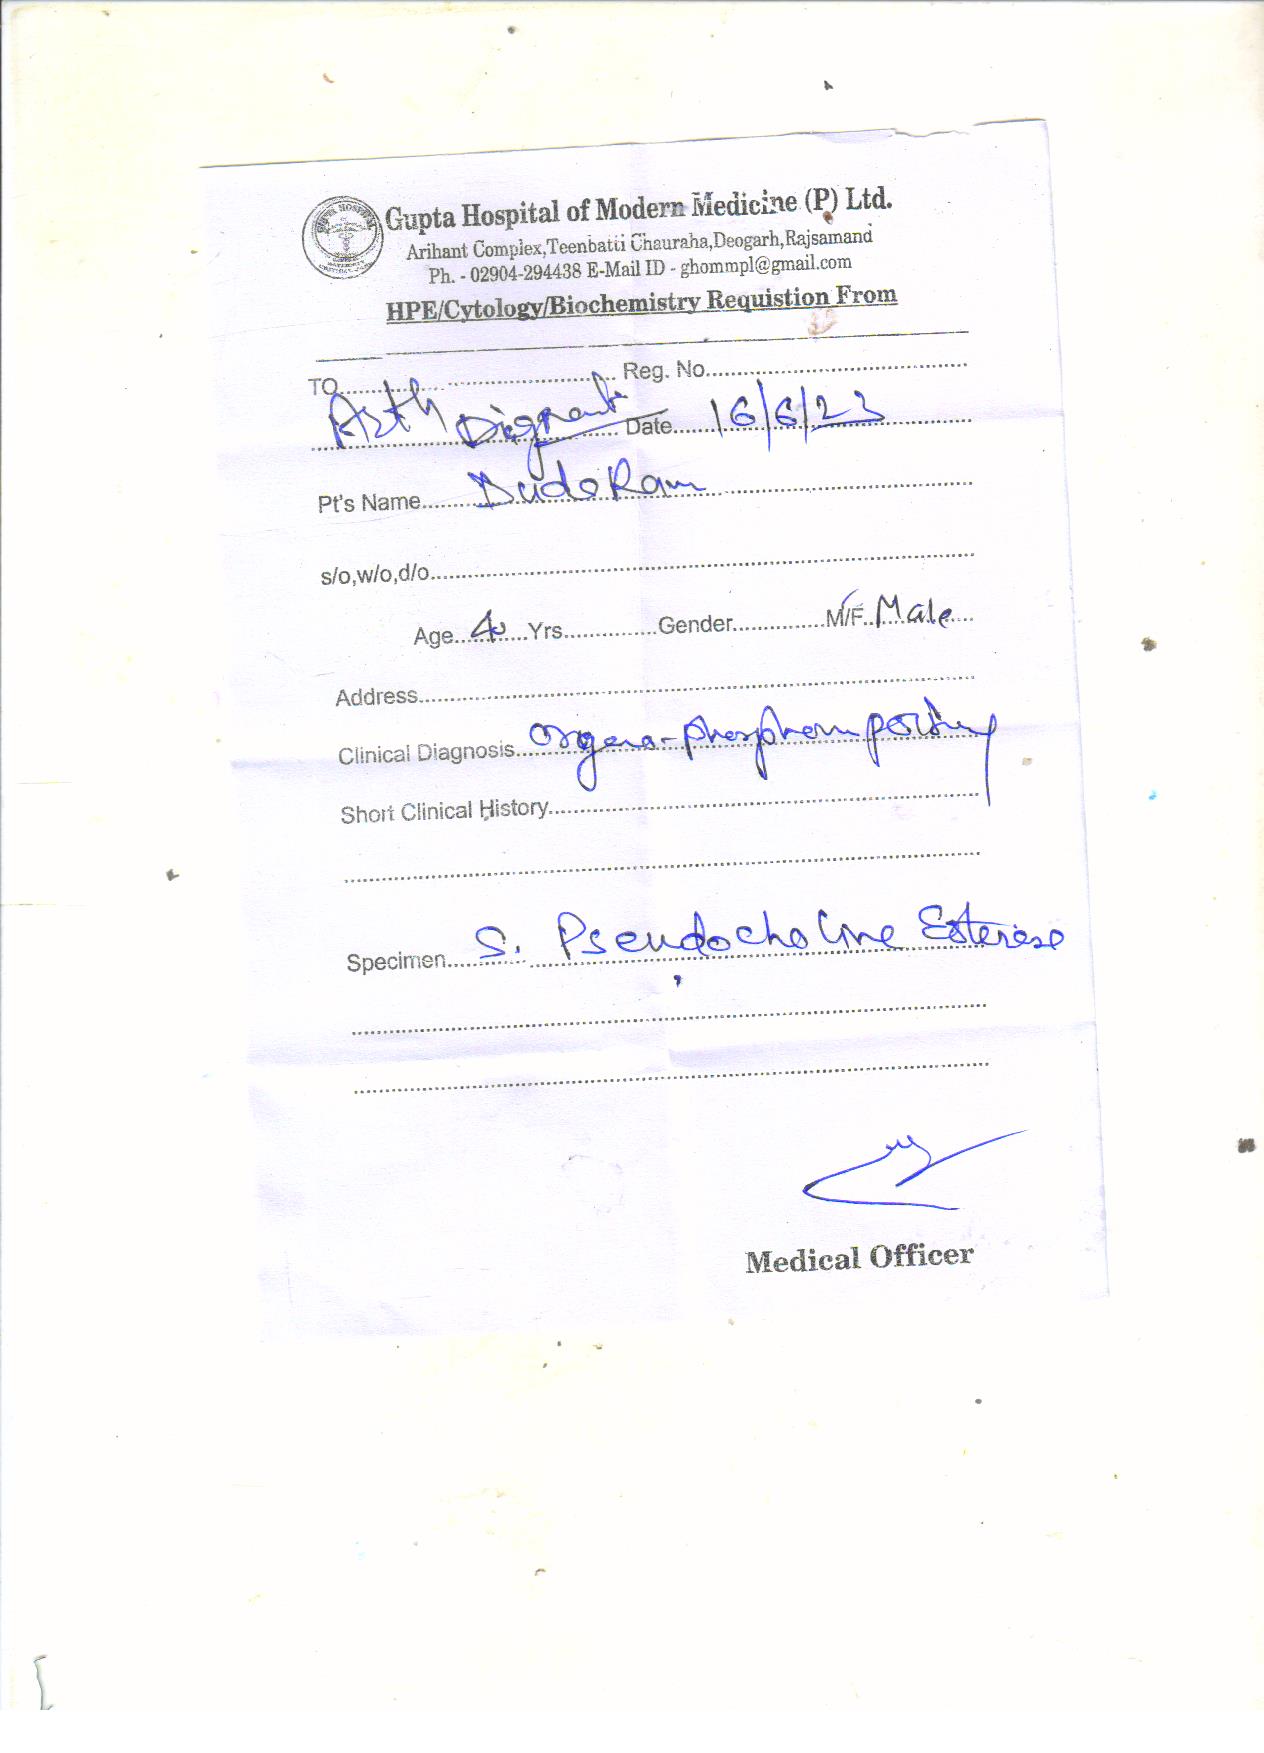 Gupta Hospital of Modern Medicine (P) Ltd.
Arihant Complex,Teenbatti Chauraha,Deogarh,Rajsamand
Ph. - 02904-294438 E-Mail ID - ghommpl@gmail.com
HPE/Cytology/Biochemistry Requistion From
TO.......................................... Reg. No.......................................
Arth Diagnostic Date....... 16/6/23
Pt's Name....... Duda Ram
s/o,w/o,d/o.......................................
Age...... Yrs..............Gender..............M/F. Male
Address.......................................
Clinical Diagnosis....... Organo-phosphorus poisoning
Short Clinical History.......................................
Specimen....... S. Pseudocholine Esterase
Medical Officer